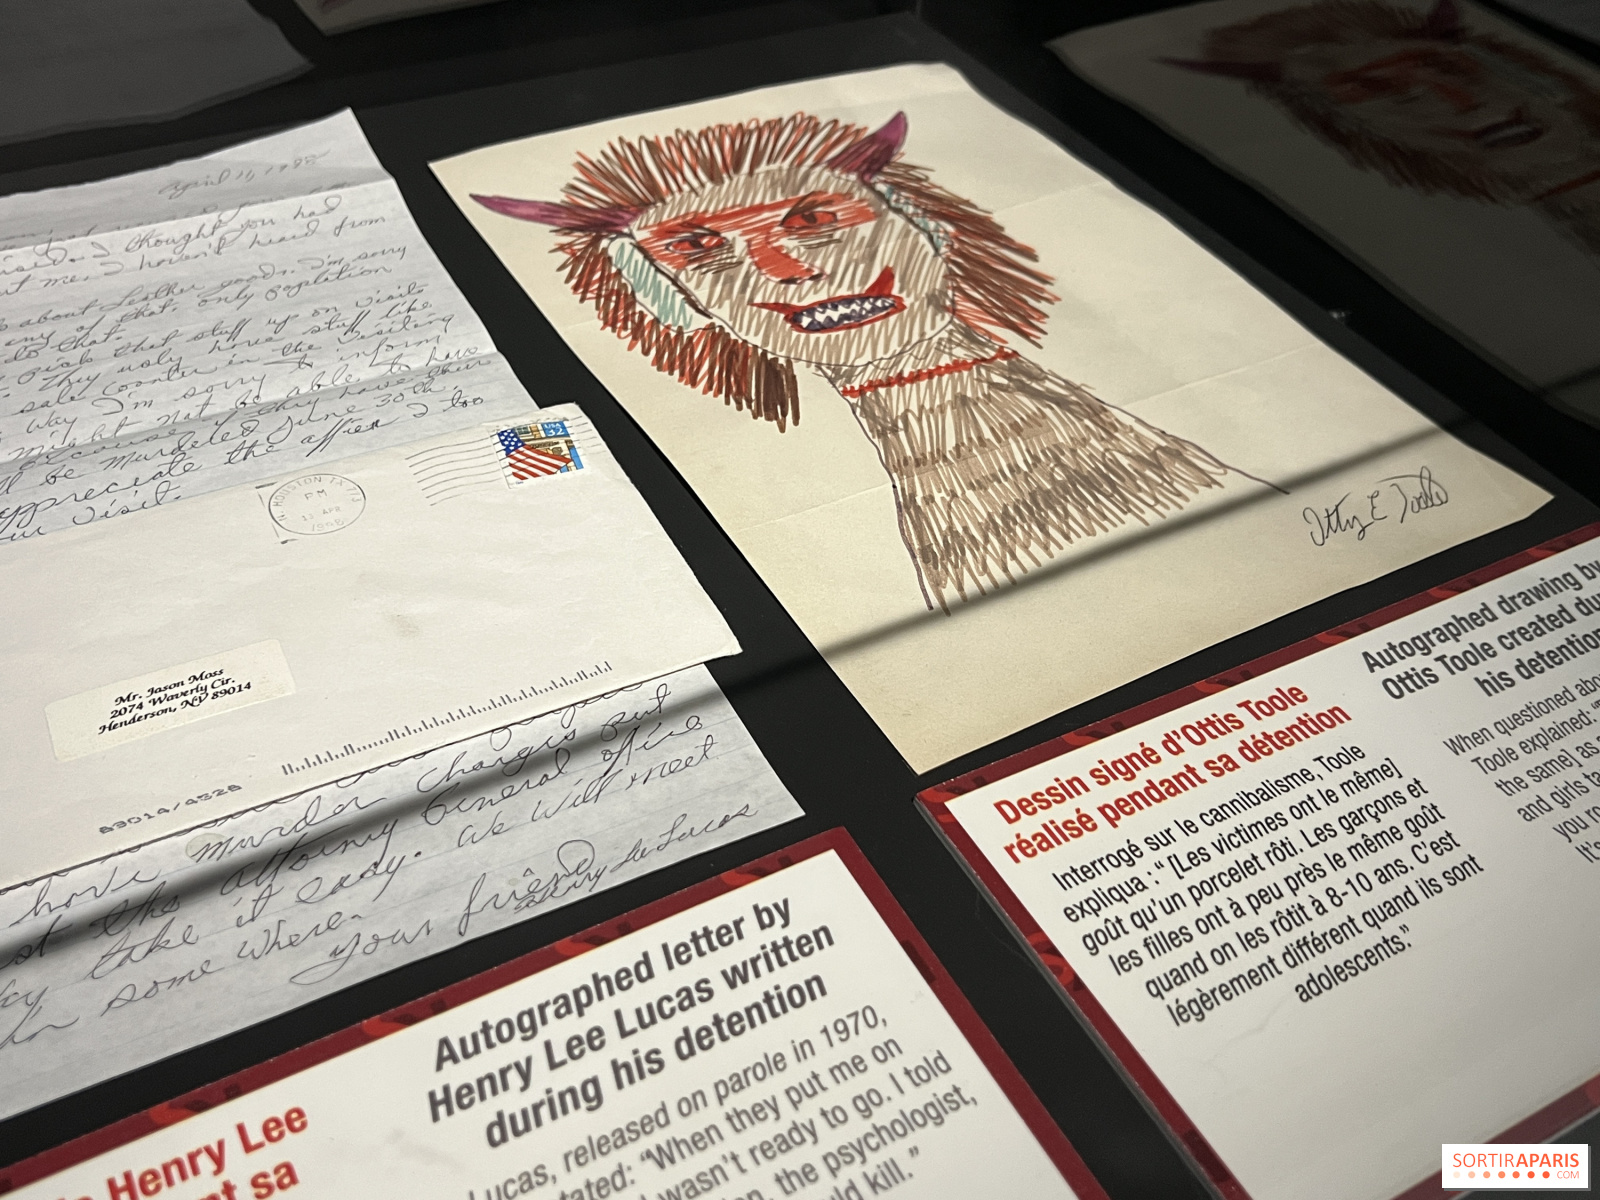 April 11, 1998
I thought you had
me, I haven't heard from
about Leather goods. I'm sorry
any of that. only population
do that.
that stuff up on visit.
They usly have stuff like
sales counter in the visiting
way I'm sorry to inform
might not be able to have
because if they have their
be murdered June 30th.
appreciate the offer I too
visit.
USA
32
N. HOUSTON TX 773
PM
13 APR
1998
Mr. Jason Moss
2074 Waverly Cir.
Henderson, NV 89014
89014/4328
have murder charges put
the attorny General office
take it easy. we will meet
some where.
your friend
Henry Lee Lucas
Ottis E Toole
Henry Lee
sa
Autographed letter by
Henry Lee Lucas written
during his detention
Lucas, released on parole in 1970,
stated: “When they put me on
wasn’t ready to go. I told
the psychologist,
kill.”
Dessin signé d’Ottis Toole
réalisé pendant sa détention
Interrogé sur le cannibalisme, Toole
expliqua : “ [Les victimes ont le même]
goût qu’un porcelet rôti. Les garçons et
les filles ont à peu près le même goût
quand on les rôtit à 8-10 ans. C’est
légèrement différent quand ils sont
adolescents.”
Autographed drawing by
Ottis Toole created
his detention
When questioned
Toole explained:
the same] as
and girls
you
It’s
SORTIRAPARIS
.COM